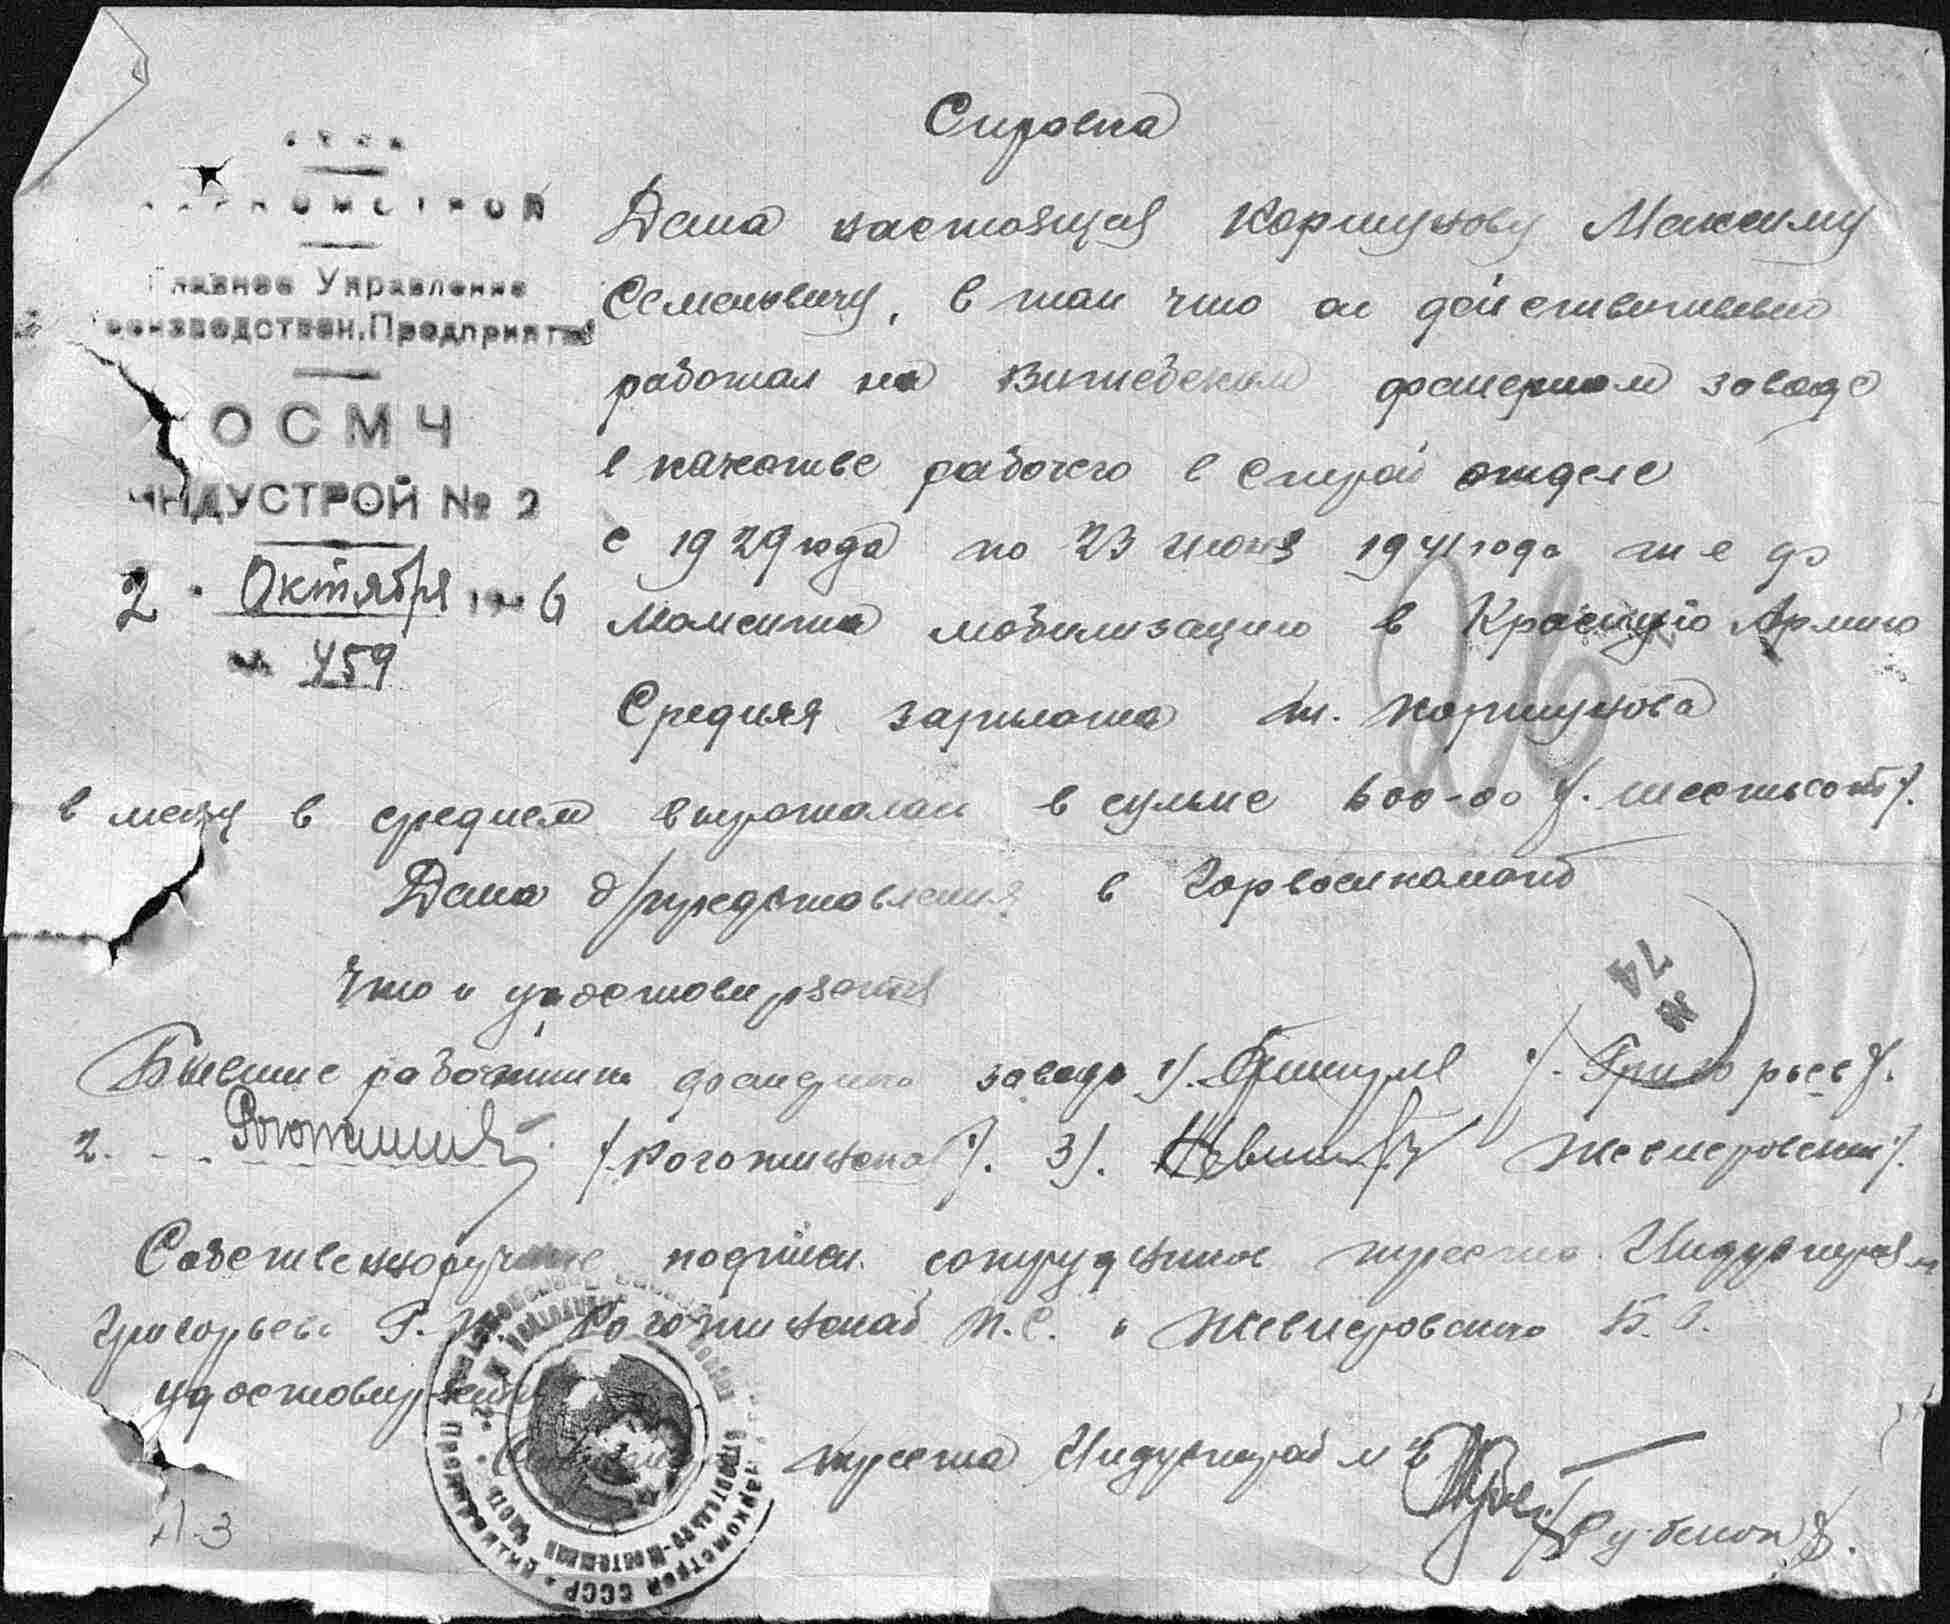 Справка
Главное Управление
Производствен. Предприятий
ОСМЧ
ИНДУСТРОЙ № 2
2 Октября 1946
№ 459
Дана настоящая Коршунову Максиму
Семеновичу, в том что он действительно
работал на Витебском фанерном заводе
в качестве рабочего в строй отделе
с 1929 года по 23 июня 1941 года т е до
момента мобилизацию в Красную Армию
Средняя зарплата т. Коршунова
в месяц в среднем выроталась в сумме 600-00 /. шестьсот /.
Дана д/представления в Горвоенкомат
Что и удостоверяется
№ 74
Бывшие работники фанерного завода 1/. /. Григорьев /.
2. /. Рогожинская /. 3/. Жевнеровский /.
Собственноручные подписи сотрудников треста Индустрой №
Григорьева Г. Рогожинской М. С. и Жевнеровского Б. З.
удостоверяется
треста Индустрой № 2
26
А-3